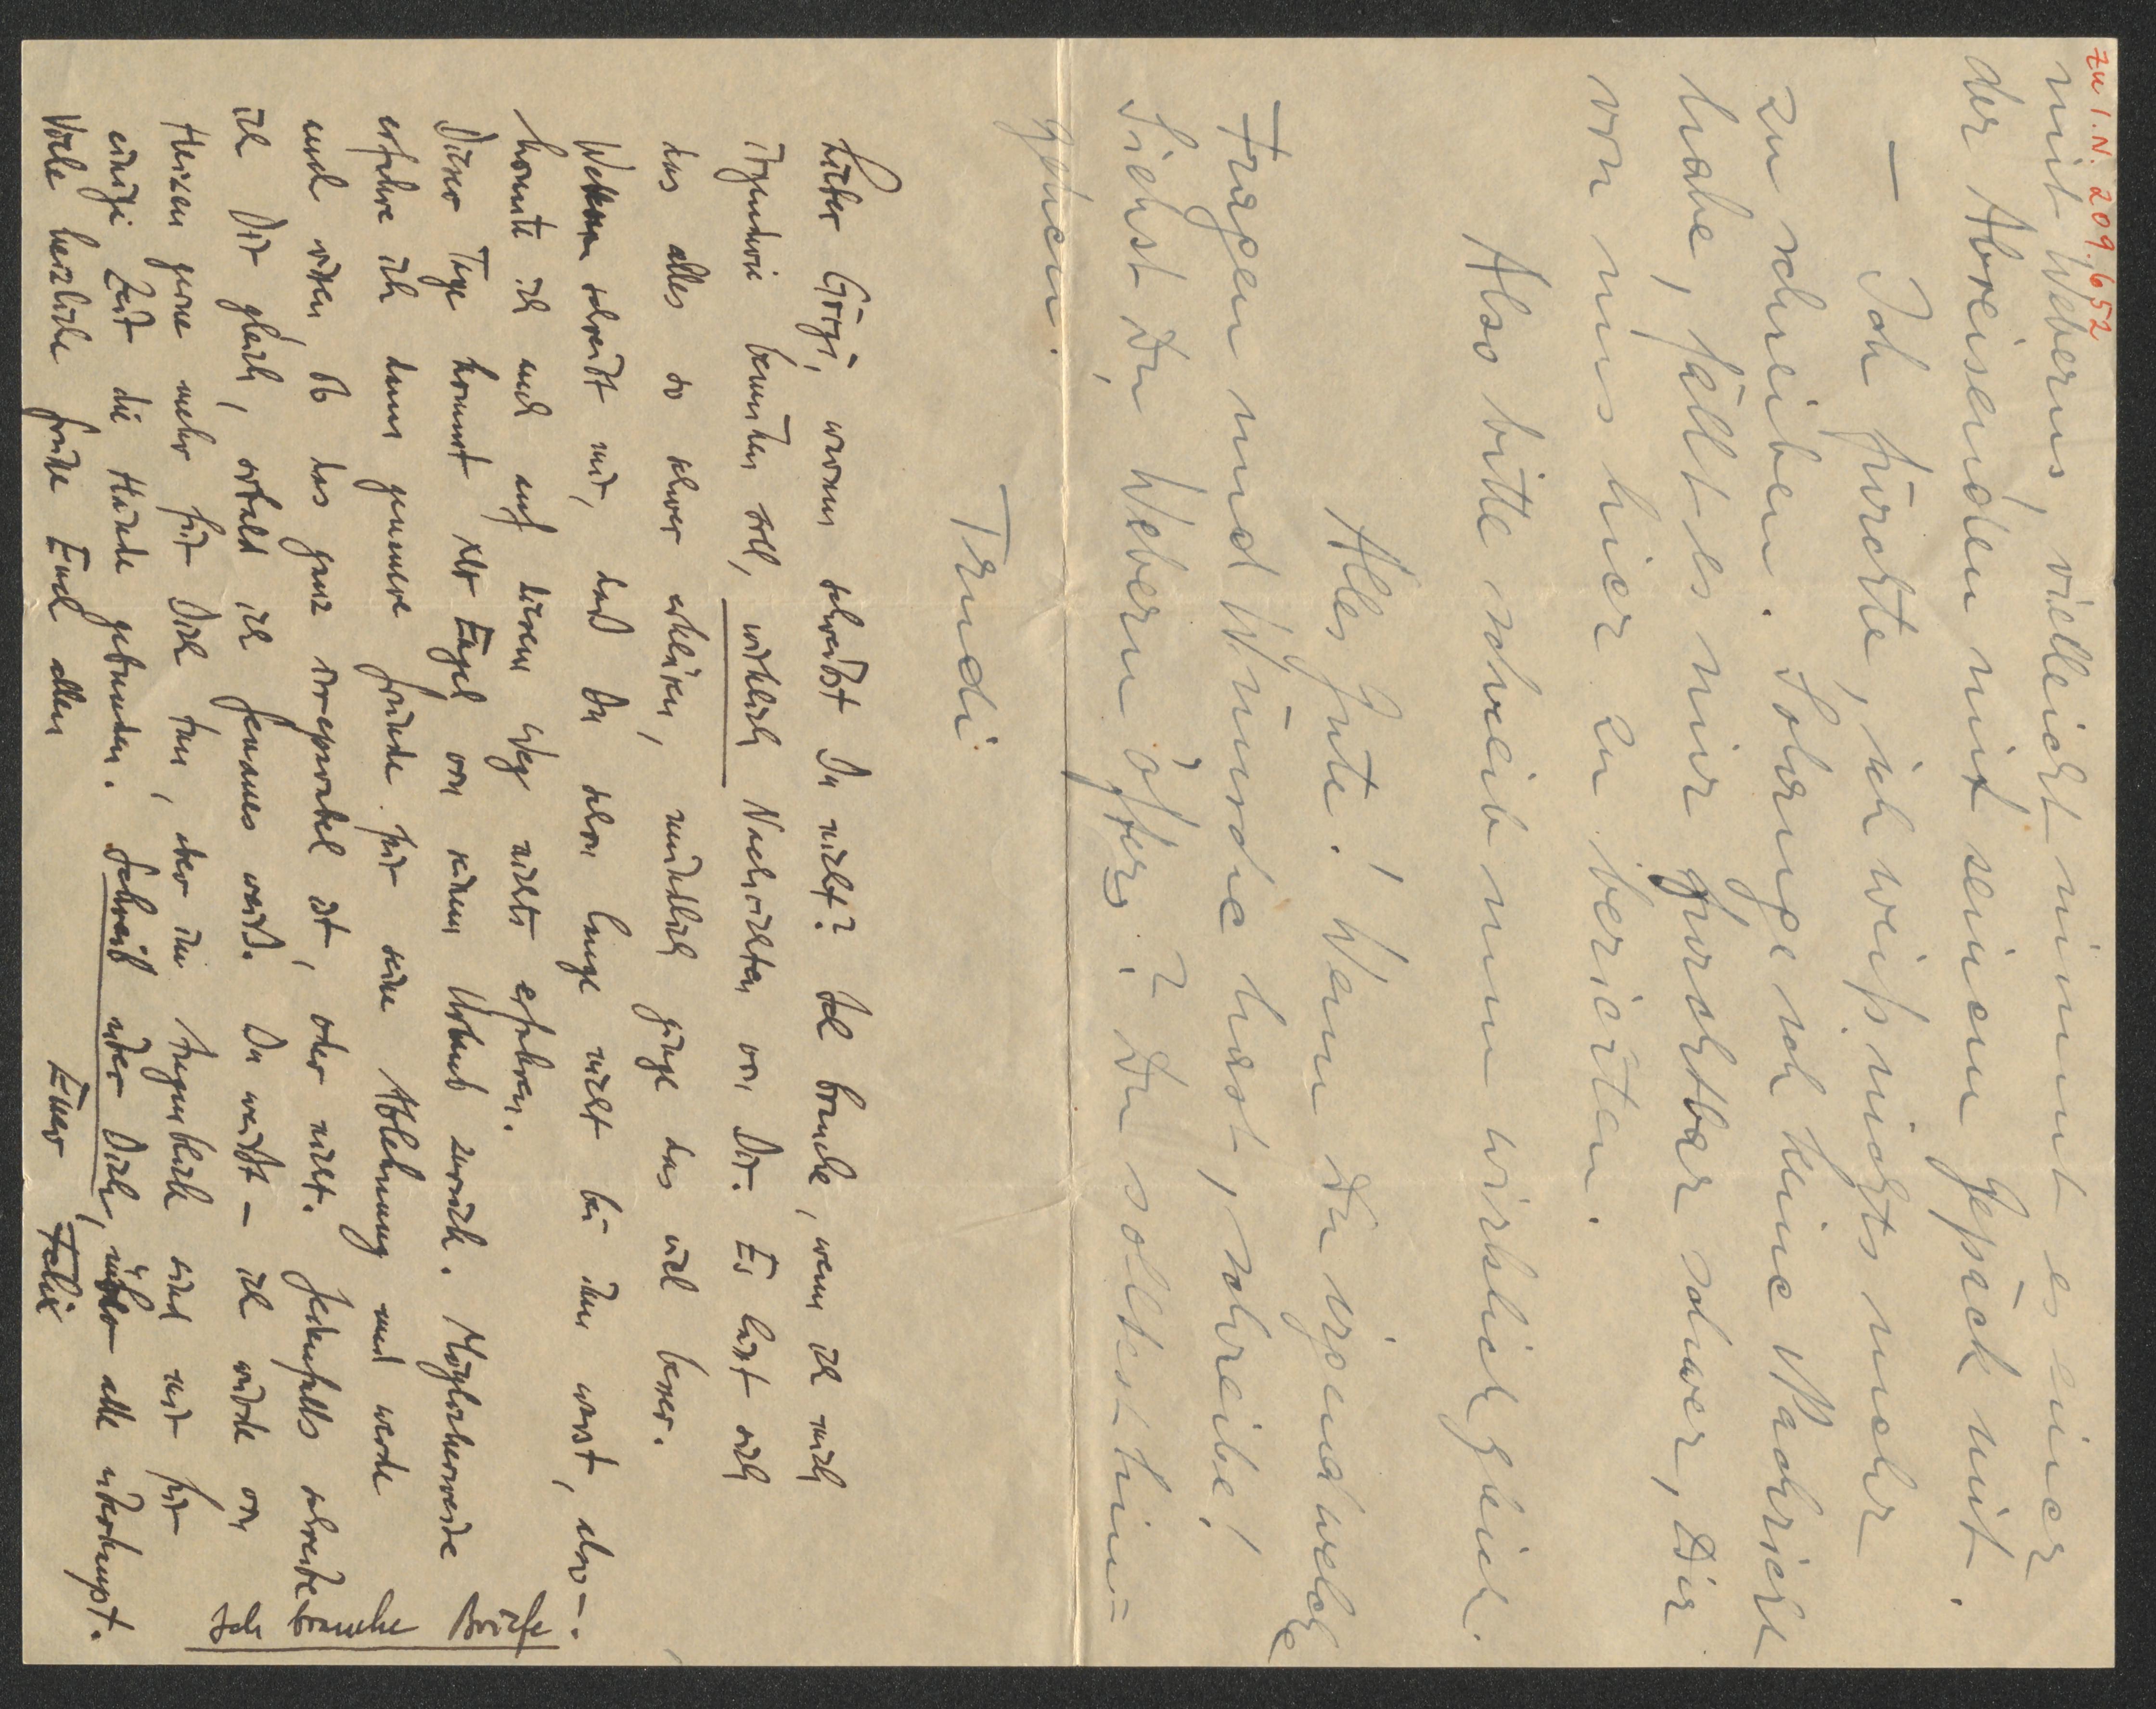 zu I.N. 209.652
mit Weberns, vielleicht nimmt es einer
der Abreisenden mit seinem Gepäck mit.
— Ich fürchte, ich weiß nichts mehr
zu schreiben. Solange ich keine Nachricht
habe, fällt es mir furchtbar schwer, Dir
von uns hier zu berichten.
Also bitte schreib nun wirklich gleich.
Alles Gute! Wenn Du irgendwelche
Fragen und Wünsche hast, schreibe!
Siehst Du Webern öfters? Du solltest hin=
gehen.
Trudi
Lieber Görgi, warum schreibst Du nicht? Ich brauche, wenn ich mich
irgendwie bemühen soll, wirklich Nachrichten von Dir. Es lässt sich
das alles so schwer erklären, mündlich ginge das viel besser.
Webern schreibt mir, daß Du schon lange nicht bei ihm warst, also
konnte ich auch auf diesem Weg nichts erfahren.
Dieser Tage kommt Engel von seinem Urlaub zurück. Möglicherweise
erfahre ich dann genauere Gründe für seine Ablehnung und werde
auch sehen, ob das ganz irreparabel ist, oder nicht. Jedenfalls schreibe
ich Dir gleich, sobald ich Genaues weiß. Du weißt – ich würde von
Herzen gerne mehr für Dich tun, aber im Augenblick sind mir für
einige Zeit die Hände gebunden. Schreib über Dich, über alle überhaupt.
Viele herzliche Grüße Euch allen
Euer Felix
Ich brauche Briefe.